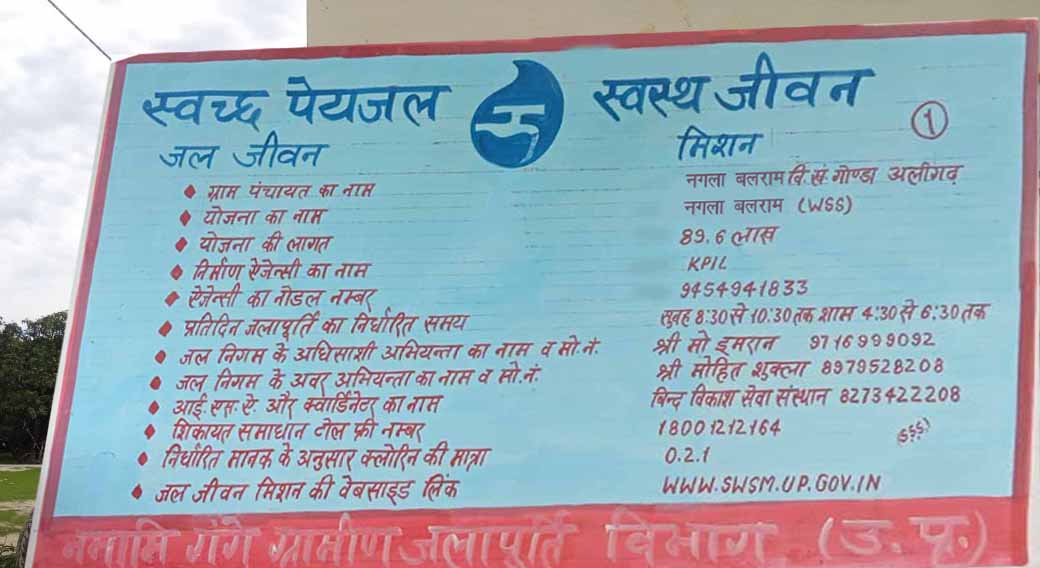 स्वच्छ पेयजल स्वस्थ जीवन
जल जीवन मिशन
1
ग्राम पंचायत का नाम नगला बलराम वि.सं. गोण्डा अलीगढ़
योजना का नाम नगला बलराम (WSS)
योजना की लागत 89.6 लाख
निर्माण ऐजेन्सी का नाम KPIL
ऐजेन्सी का नोडल नम्बर 9454941833
प्रतिदिन जलापूर्ति का निर्धारित समय सुबह 8:30 से 10:30 तक शाम 4:30 से 6:30 तक
जल निगम के अधिसाशी अभियन्ता का नाम व मो.नं. श्री मो इमरान 9716999092
जल निगम के अवर अभियन्ता का नाम व मो.नं. श्री मोहित शुक्ला 8979528208
आई.एस.ऐ. और क्वार्डिनेटर का नाम बिन्द विकाश सेवा संस्थान 8273422208
शिकायत समाधान टोल फ्री नम्बर 18001212164
निर्धारित मानक के अनुसार क्लोरिन की मात्रा 0.2.1
जल जीवन मिशन की वेबसाइड लिंक WWW.SWSM.UP.GOV.IN
नमामि गंगे ग्रामीण जलापूर्ति विभाग (उ.प्र.)